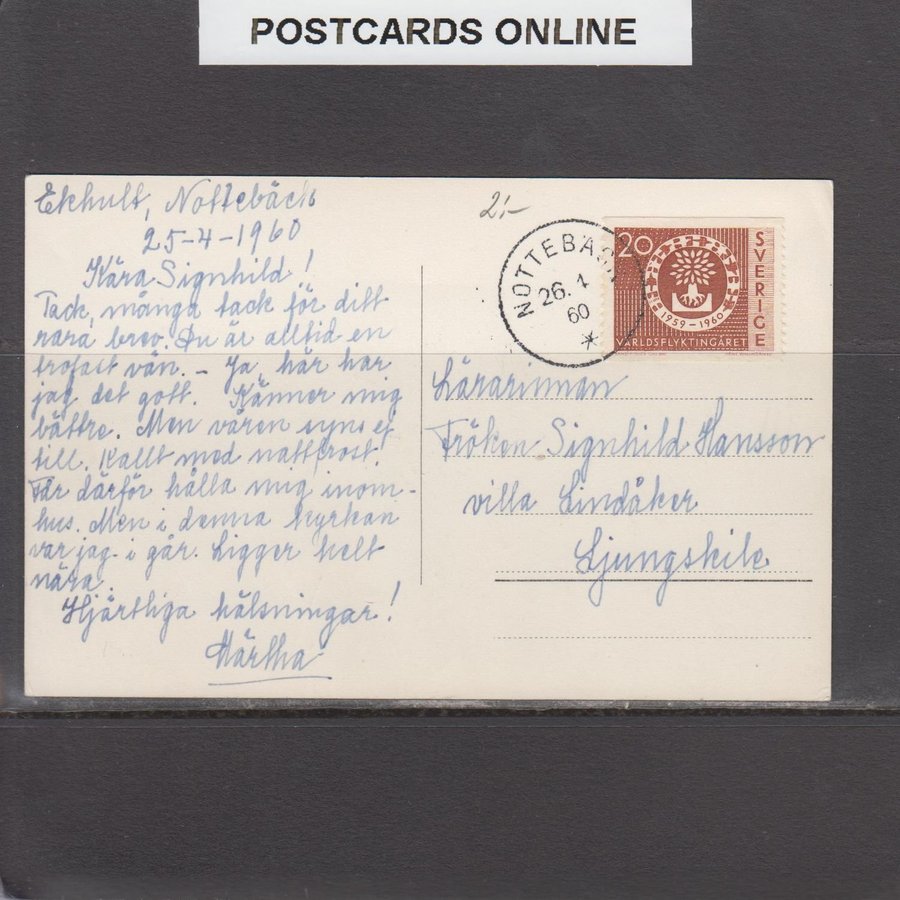 POSTCARDS ONLINE
Ekhult, Nottebäck
25-4-1960
Kära Signhild!
Tack, många tack för ditt
rara brev. Du är alltid en
trofast vän. – Ja, här har
jag det gott. Känner mig
bättre. Men våren syns ej
till. Kallt med nattfrost.
Får därför hålla mig inom-
hus. Men i denna kyrkan
var jag i går. Ligger helt
nära.
Hjärtliga hälsningar!
Märtha
2:-
NOTTEBÄCK
26. 4
60
*
20
SVERIGE
1959–1960
VÄRLDSFLYKTINGÅRET
Lärarinnan
Fröken Signhild Hansson
villa Lindåker
Ljungskile